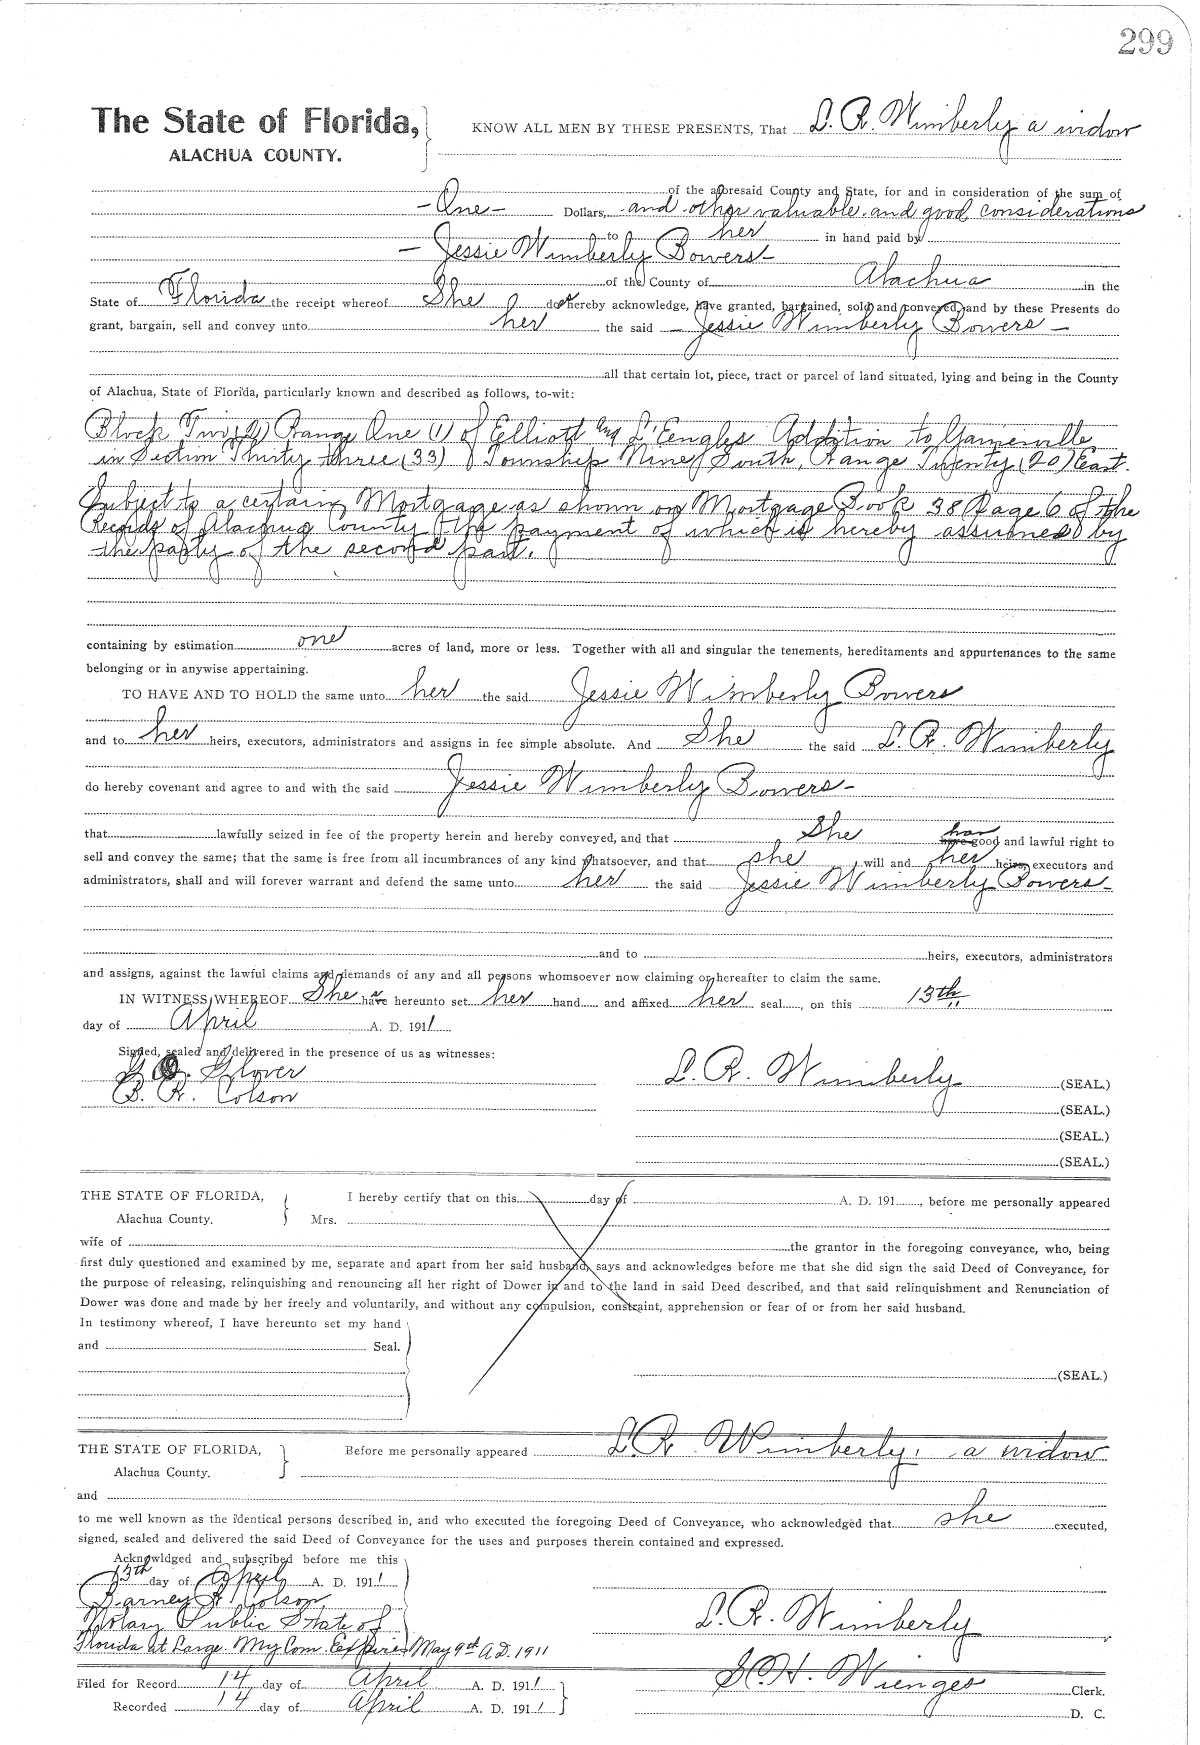 299
The State of Florida, KNOW ALL MEN BY THESE PRESENTS, That L. R. Wimberly a widow
ALACHUA COUNTY.
of the aforesaid County and State, for and in consideration of the sum of
- One - Dollars, and other valuable and good considerations
to her in hand paid by
- Jessie Wimberly Bowers -
of the County of Alachua in the
State of Florida the receipt whereof She does hereby acknowledge, have granted, bargained, sold and conveyed, and by these Presents do
grant, bargain, sell and convey unto her the said - Jessie Wimberly Bowers -
all that certain lot, piece, tract or parcel of land situated, lying and being in the County
of Alachua, State of Florida, particularly known and described as follows, to-wit:
Block Two (2) Range One (1) of Elliott and L'Engles Addition to Gainesville
in Section Thirty three (33) Township Nine South, Range Twenty (20) East.
Subject to a certain Mortgage as shown on Mortgage Book 38 Page 6 of the
Records of Alachua County the payment of which is hereby assumed by
the party of the second part.
containing by estimation one acres of land, more or less. Together with all and singular the tenements, hereditaments and appurtenances to the same
belonging or in anywise appertaining.
TO HAVE AND TO HOLD the same unto her the said Jessie Wimberly Bowers
and to her heirs, executors, administrators and assigns in fee simple absolute. And She the said L. R. Wimberly
do hereby covenant and agree to and with the said Jessie Wimberly Bowers -
that lawfully seized in fee of the property herein and hereby conveyed, and that She has good and lawful right to
sell and convey the same; that the same is free from all incumbrances of any kind whatsoever, and that she will and her heirs, executors and
administrators, shall and will forever warrant and defend the same unto her the said Jessie Wimberly Bowers -
and to heirs, executors, administrators
and assigns, against the lawful claims and demands of any and all persons whomsoever now claiming or hereafter to claim the same.
IN WITNESS WHEREOF She has hereunto set her hand and affixed her seal, on this 13th
day of April A. D. 1911
Signed, sealed and delivered in the presence of us as witnesses:
Glover L. R. Wimberly (SEAL.)
B. R. Colson (SEAL.)
(SEAL.)
(SEAL.)
THE STATE OF FLORIDA, I hereby certify that on this day of A. D. 191 , before me personally appeared
Alachua County. Mrs.
wife of the grantor in the foregoing conveyance, who, being
first duly questioned and examined by me, separate and apart from her said husband, says and acknowledges before me that she did sign the said Deed of Conveyance, for
the purpose of releasing, relinquishing and renouncing all her right of Dower in and to the land in said Deed described, and that said relinquishment and Renunciation of
Dower was done and made by her freely and voluntarily, and without any compulsion, constraint, apprehension or fear of or from her said husband.
In testimony whereof, I have hereunto set my hand
and Seal.
(SEAL.)
THE STATE OF FLORIDA, Before me personally appeared L. R. Wimberly, a widow
Alachua County.
and
to me well known as the identical persons described in, and who executed the foregoing Deed of Conveyance, who acknowledged that she executed,
signed, sealed and delivered the said Deed of Conveyance for the uses and purposes therein contained and expressed.
Acknowldged and subscribed before me this
13th day of April A. D. 1911
Barney R. Colson
Notary Public State of L. R. Wimberly
Florida at Large. My Com. Expires May 9th A.D. 1911
Filed for Record 14 day of April A. D. 1911 S. H. Wienges Clerk.
Recorded 14 day of April A. D. 1911 D. C.